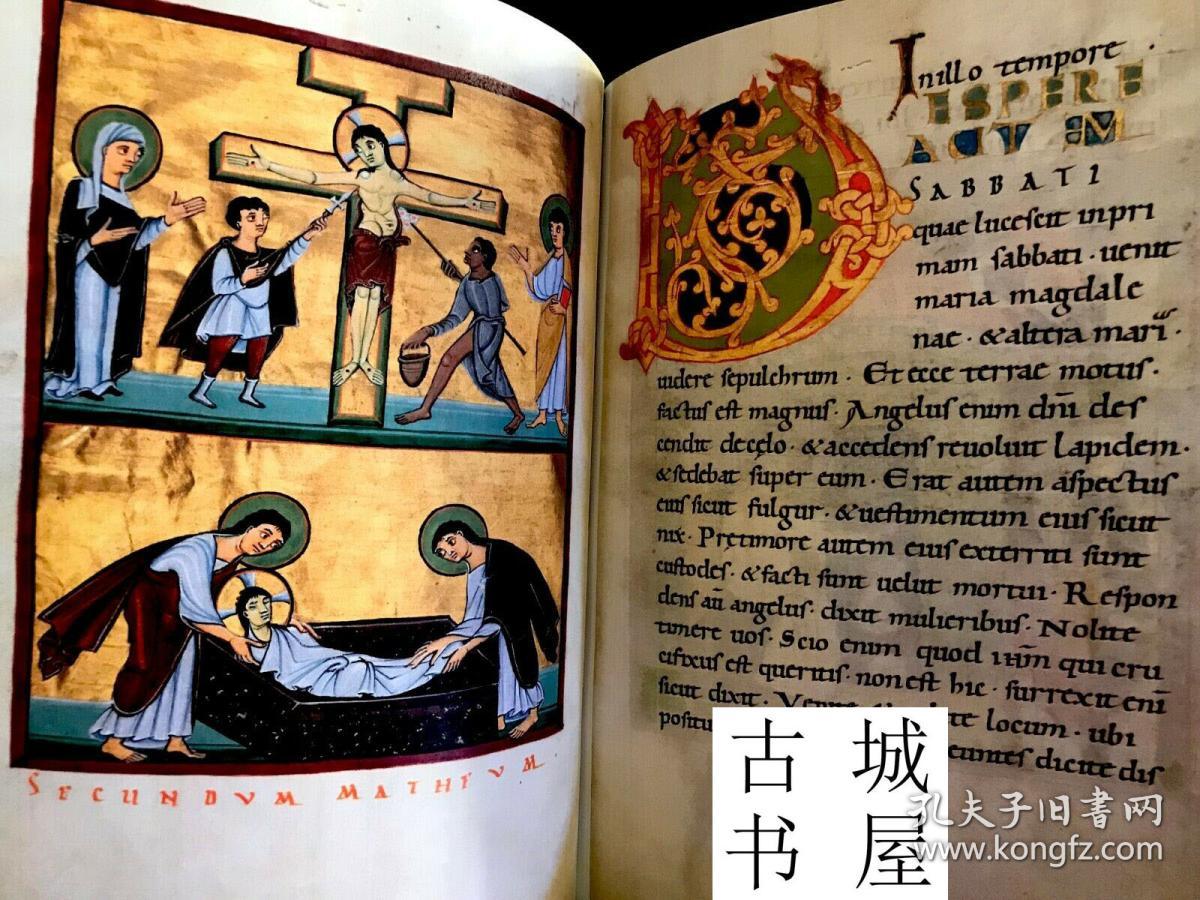 SECUNDVM MATHEVM
In illo tempore.
ESPERE
AUTEM
SABBATI
quae lucescit in pri
mam sabbati · uenit
maria magdale
nae · & altera mari
uidere sepulchrum · Et ecce terrae motus ·
factus est magnus · Angelus enim dn̄i des
cendit de cęlo · & accedens reuoluit Lapidem ·
& sedebat super eum · Erat autem aspectus
eius sicut fulgur · & uestimentum eius sicut
nix · Prę timore autem eius exterriti sunt
custodes · & facti sunt uelut mortui · Respon
dens aū angelus · dixit mulieribus · Nolite
timere uos · Scio enim quod ihm̄ qui cru
cifixus est queritis · non est hic · surrexit eni̅
sicut dixit · locum · ubi
positu euntes dicite dis
古城
书屋
孔夫子旧书网
www.kongfz.com